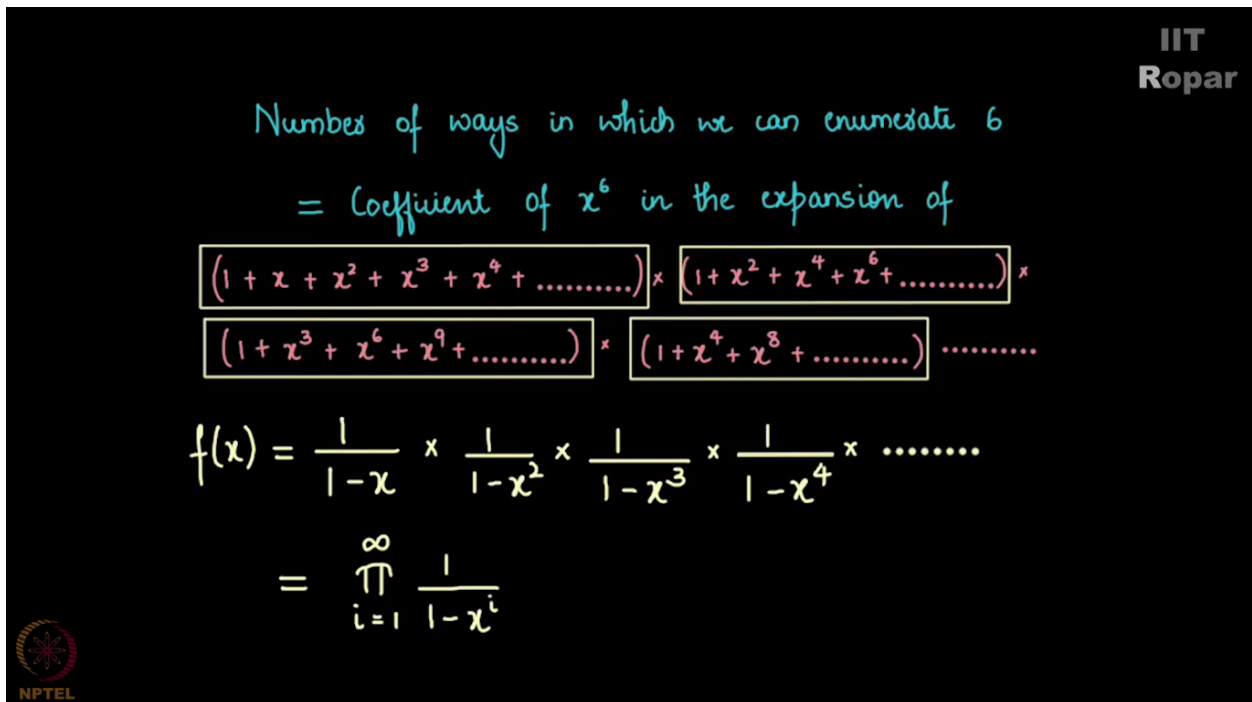 IIT
Ropar
Number of ways in which we can enumerate 6
= Coefficient of x⁶ in the expansion of
(1 + x + x² + x³ + x⁴ + ..........) × (1 + x² + x⁴ + x⁶ + ..........) ×
(1 + x³ + x⁶ + x⁹ + ..........) × (1 + x⁴ + x⁸ + ..........) ..........
f(x) = 1/(1-x) × 1/(1-x²) × 1/(1-x³) × 1/(1-x⁴) × ........
= ∞ π i=1 1/(1-xⁱ)
NPTEL